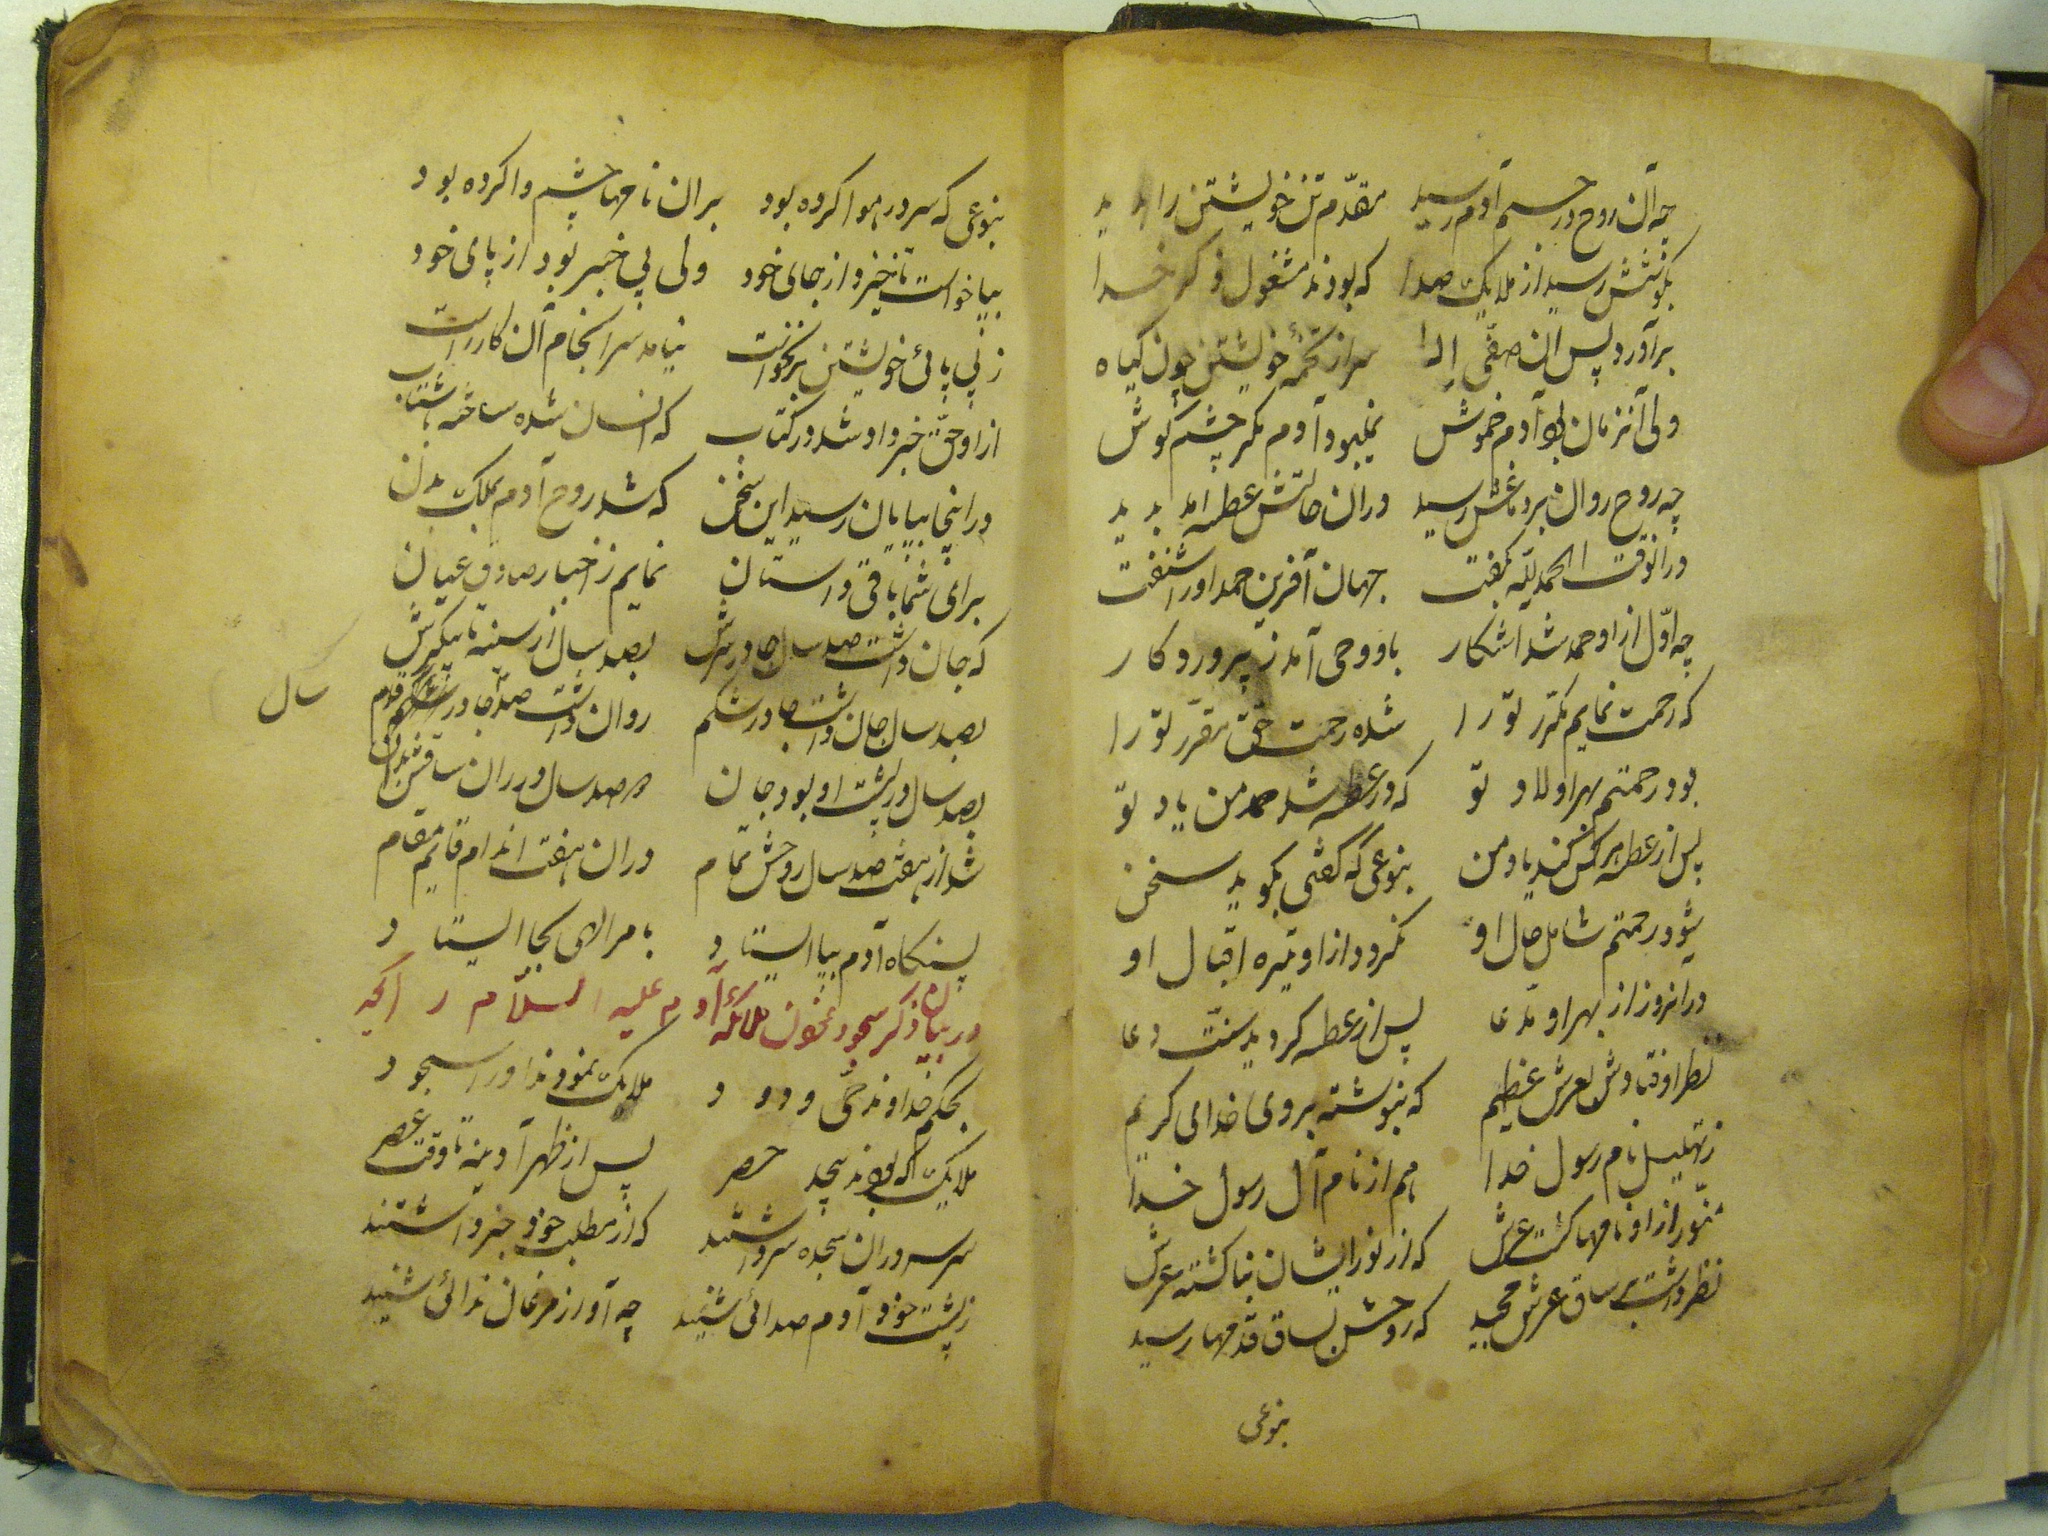 چه آن روح در جسم آدم رسید مقدّم تن خویشتن را بدید
بگوشش رسید از ملایک صدا که بودند مشغول ذکر خدا
برآورد پس آن صفّی اله سر از تخمهٔ خویشتن چون گیاه
ولی آنزمان بد آدم خموش نمیبود آدم مگر چشم گوش
چه روح روان بر دماغش رسید در آن حالتش عطسه آمد پدید
در آنوقت الحمد للّه بگفت جهان آفرین حمد او را شنفت
چه اوّل از او حمد شد آشکار باو وحی آمد ز پروردکار
که رحمت نمایم مکرّر تو را شده رحمت حق مقرّر تو را
بود رحمتم بهر اولاد تو که در عطسه شد حمد من یاد تو
پس از عطسه هر کس کند یاد من بنوعی که گفتی بگوید سخن
شود رحمتم شامل حال او نگردد از او تیره اقبال او
در آنروز از بهر او مدّعا پس از عطسه کردید سنّت دعا
نظر اوفتادش بعرش عظیم که بنوشته بر وی خدای کریم
ز تهلیل نام رسول خدا هم از نام آل رسول خدا
منّور از او نامها کشت عرش که از نور ایشان بنا کشته عرش
نظر داشت بر ساق عرش مجید که روحش بساق قدمها رسید
بنوعی
بنوعی که سر در هوا کرده بود بر آن نامها چشم وا کرده بود
بپا خواست تا خیزد از جای خود ولی بی خبر بود از پای خود
ز بی پائی خویشتن برنخواست نیامد سرانجام آن کار راست
از او حقّ خبر داد شد در کتاب که انسان شده ساخته با شتاب
در اینجا بپایان رسید این سخن که شد روح آدم بملک بدن
برای شما باقی داستان نمایم ز اخبار صادق عیان
که جان داشت صد سال جا در سرش بصد سال از سینه تا پیکرش
بصد سال جان داشت جا در شکم روان داشت صد جا در قدم
سال
بصد سال در پشت او بود جان صد سال در ران ساقش
شد از هفت صد سال روحش تمام در آن هفت اندام قایم مقام
پسنکاه آدم بپا ایستاد بامر الهی بجا ایستاد
در بیان ذکر سجود نمودن ملائکه آدم علیه السلام را
بحکم خداوند حیّ ودود ملایک نمودند او را سجود
ملایک که بودند بیحد حصر پس از ظهر آدینه تا وقت عصر
سراسر در آن سجده سر داشتند که از مطلب خود خبر داشتند
ز پشت خود آدم صدائی شنید چه آواز مرغان ندائی شنید